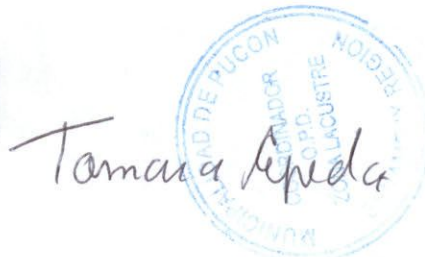 MUNICIPALIDAD DE PUCON
REGION
COORDINADOR
O.P.D.
ZONA LACUSTRE
Tamara Cepeda